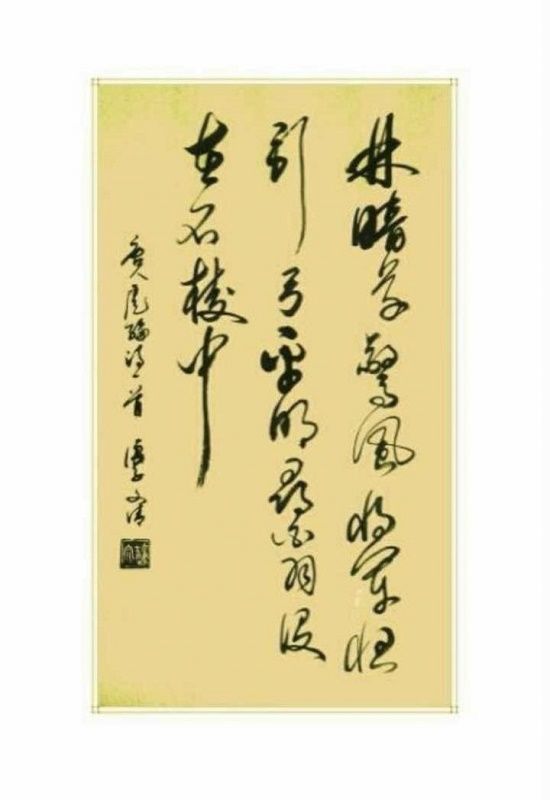 林暗草驚風將軍夜
引弓平明尋白羽没
在石棱中
盧綸诗一首